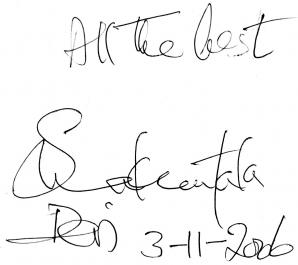 All the best
Shakuntala
Devi 3-11-2006